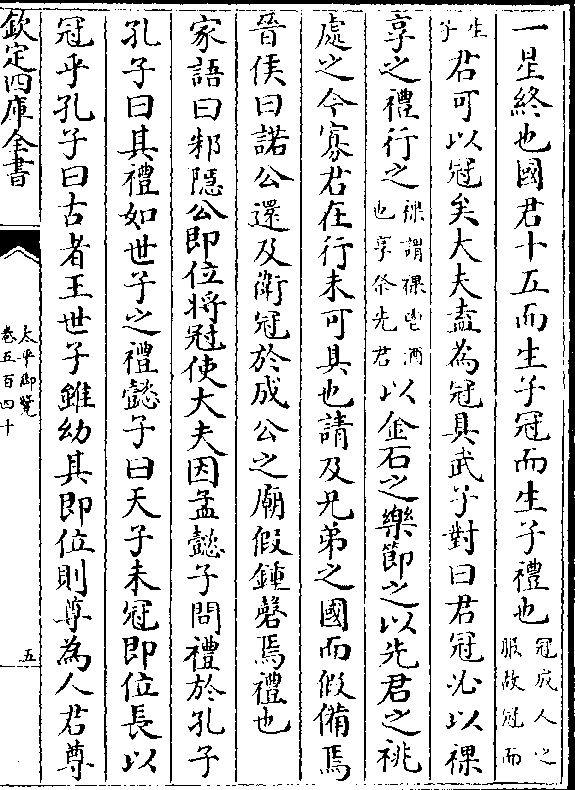 一星終也國君十五而生子冠而生子禮也冠成人之服故冠而
生子君可以冠矣大夫盍為冠具武子對曰君冠必以祼
享之禮行之祼謂祼鬯酒也享祭先君以金石之樂節之以先君之祧
處之今寡君在行未可具也請及兄弟之國而假備焉
晉侯曰諾公還及衛冠於成公之廟假鍾磬焉禮也
家語曰邾隱公即位將冠使大夫因孟懿子問禮於孔子
孔子曰其禮如世子之禮懿子曰天子未冠即位長以
冠乎孔子曰古者王世子雖幼其即位則尊為人君尊
欽定四庫全書
太平御覽
卷五百四十
五